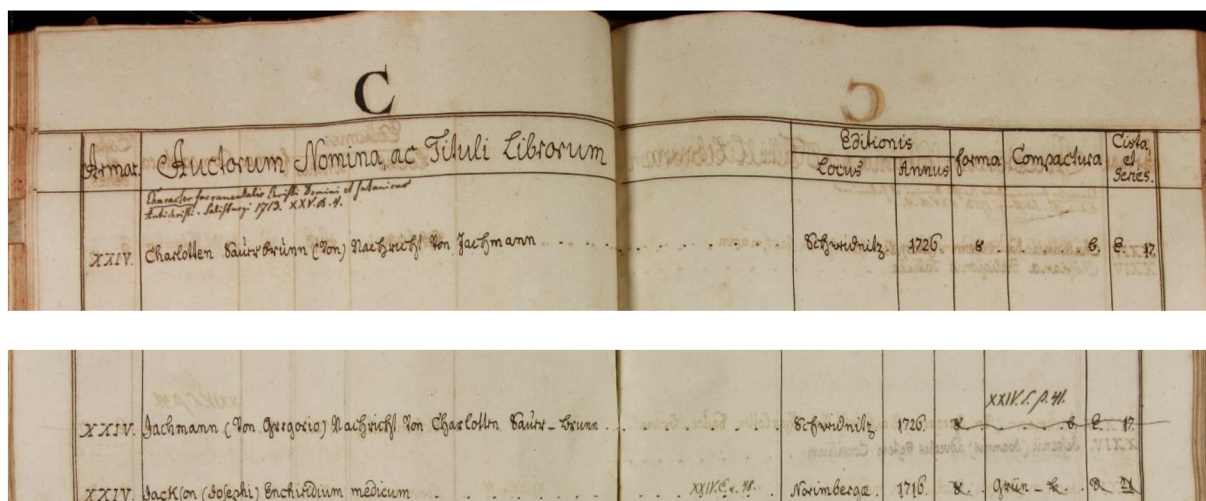 C
Armar. Auctorum Nomina, ac Tituli Librorum Editionis Locus Annus forma Compactura Cista, et Series.
Character sacramentalis Christi Domini et
Antichristi. Salisburgi 1713. XXV. B. 4.
XXIV. Charlotten Saurbrunn (Von) Nachricht Von Jachmann Schweidnitz 1726 8 C. 17.
XXIV. C. p. 41.
XXIV. Jachmann (Von Gregorio) Nachricht Von Charlotten Saurr-Brunn Schweidnitz 1726. 8. 17.
XXIV. Jackson (Josephi) Enchiridium medicum XXIV. C. Norimbergæ. 1716 8. Grün 21